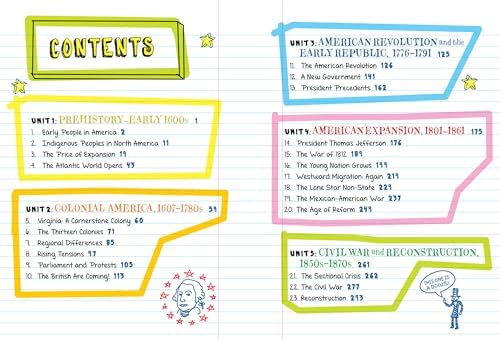 CONTENTS
UNIT 1: PREHISTORY–EARLY 1600s 1
1. Early People in America 2
2. Indigenous Peoples in North America 11
3. The Price of Expansion 19
4. The Atlantic World Opens 43
UNIT 2: COLONIAL AMERICA, 1607–1780s 59
5. Virginia: A Cornerstone Colony 60
6. The Thirteen Colonies 71
7. Regional Differences 85
8. Rising Tensions 97
9. Parliament and Protests 105
10. The British Are Coming! 113
UNIT 3: AMERICAN REVOLUTION and the
EARLY REPUBLIC, 1776–1791 125
11. The American Revolution 126
12. A New Government 141
13. President Precedents 162
UNIT 4: AMERICAN EXPANSION, 1801–1861 175
14. President Thomas Jefferson 176
15. The War of 1812 189
16. The Young Nation Grows 199
17. Westward Migration Again 219
18. The Lone Star Non-State 229
19. The Mexican-American War 237
20. The Age of Reform 249
UNIT 5: CIVIL WAR and RECONSTRUCTION,
1850s–1870s 261
21. The Sectional Crisis 262
22. The Civil War 277
23. Reconstruction 293
THIS ONE IS
A DOOZIE!